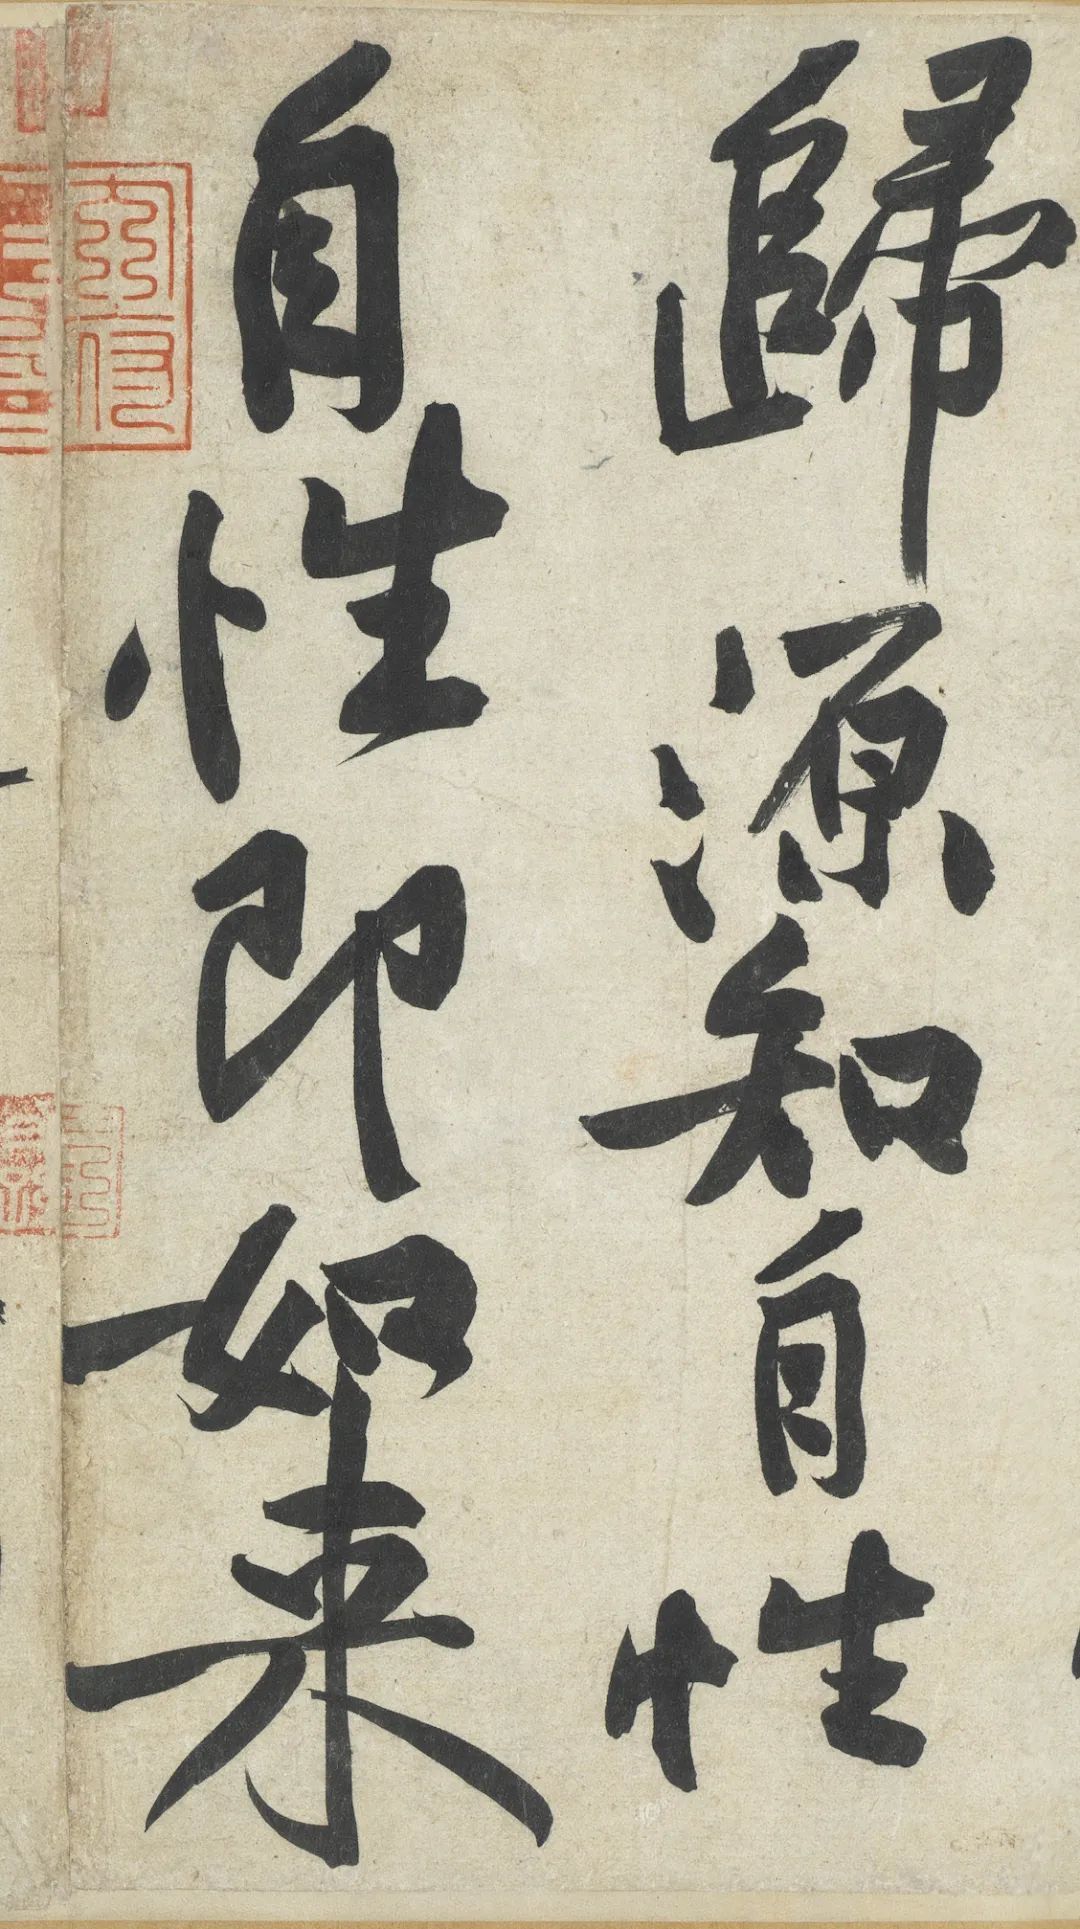 歸源知自性
自性即如来